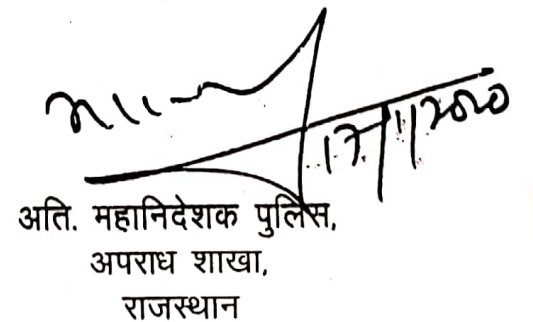 अति. महानिदेशक पुलिस,
अपराध शाखा,
राजस्थान